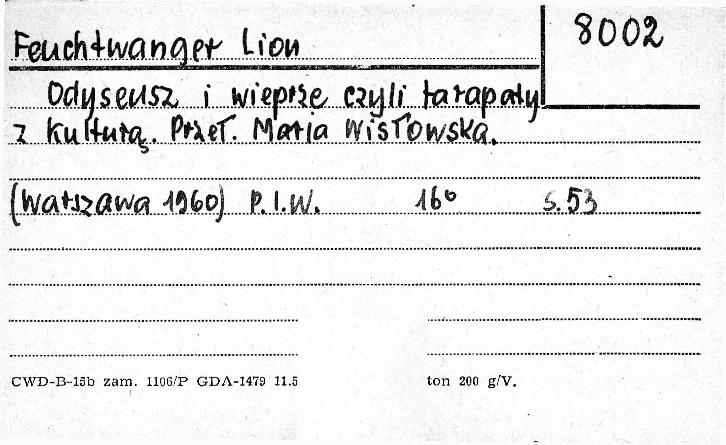 Feuchtwanger Lion
8002
Odyseusz i wieprze czyli tarapaty
z kulturą. Przeł. Maria Wisłowska.
(Warszawa 1960) P.I.W. 16° s. 53
CWD-B-15b zam. 1106/P GDA-1479 11.5 ton 200 g/V.